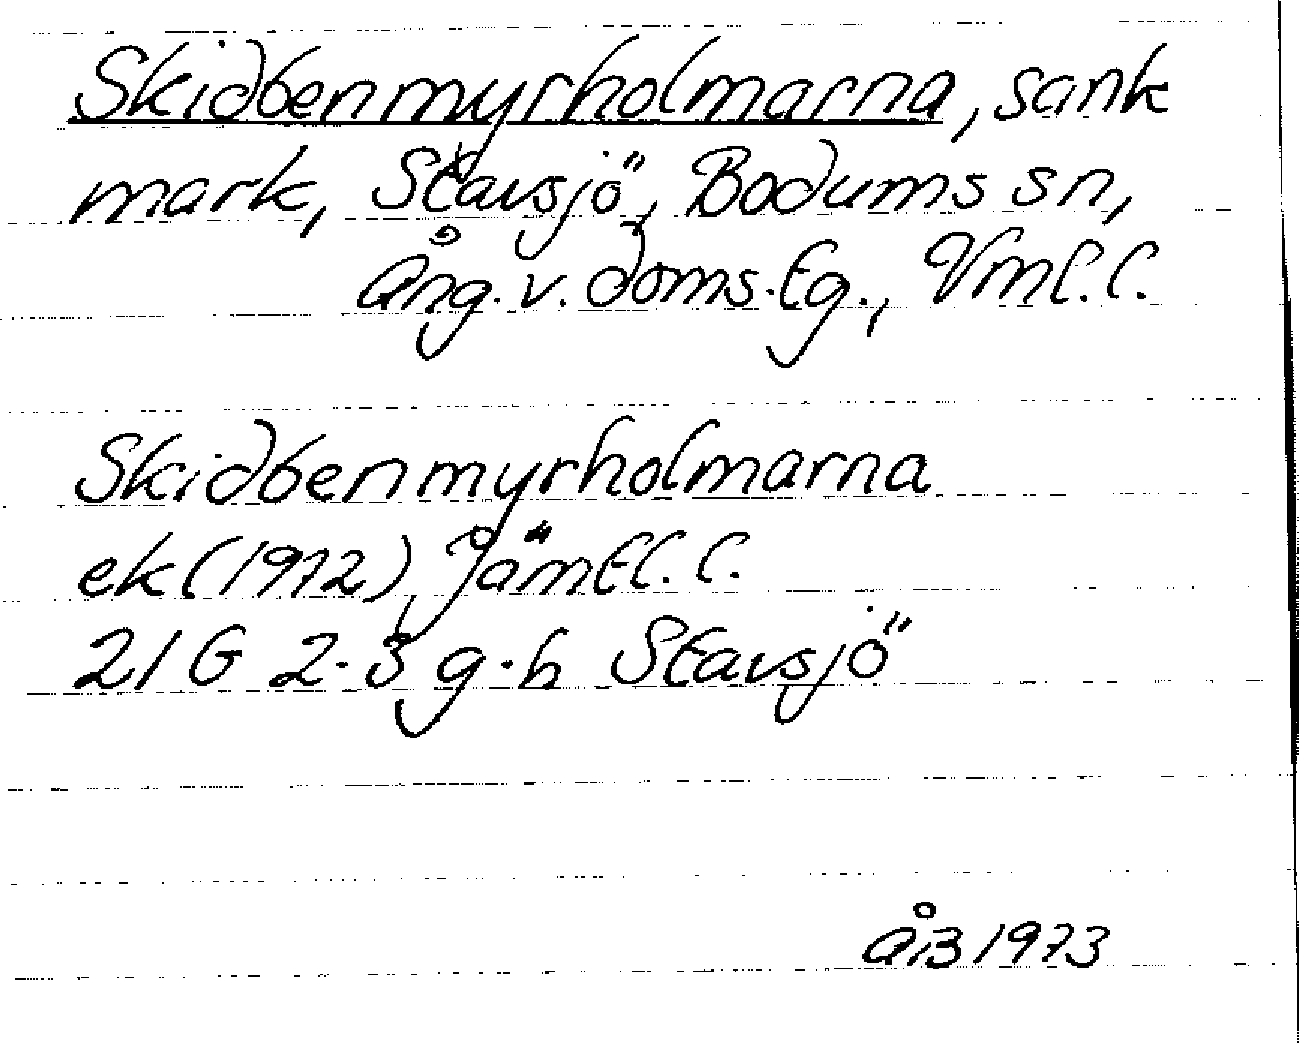 Skidbenmyrholmarna, sank
mark, Stavsjö, Bodums sn,
Ång. v. doms. tg., Vml. l.
Skidbenmyrholmarna
ek (1972) Jämtl. l.
21 G 2-3 g-h Stavsjö
ÅB 1973